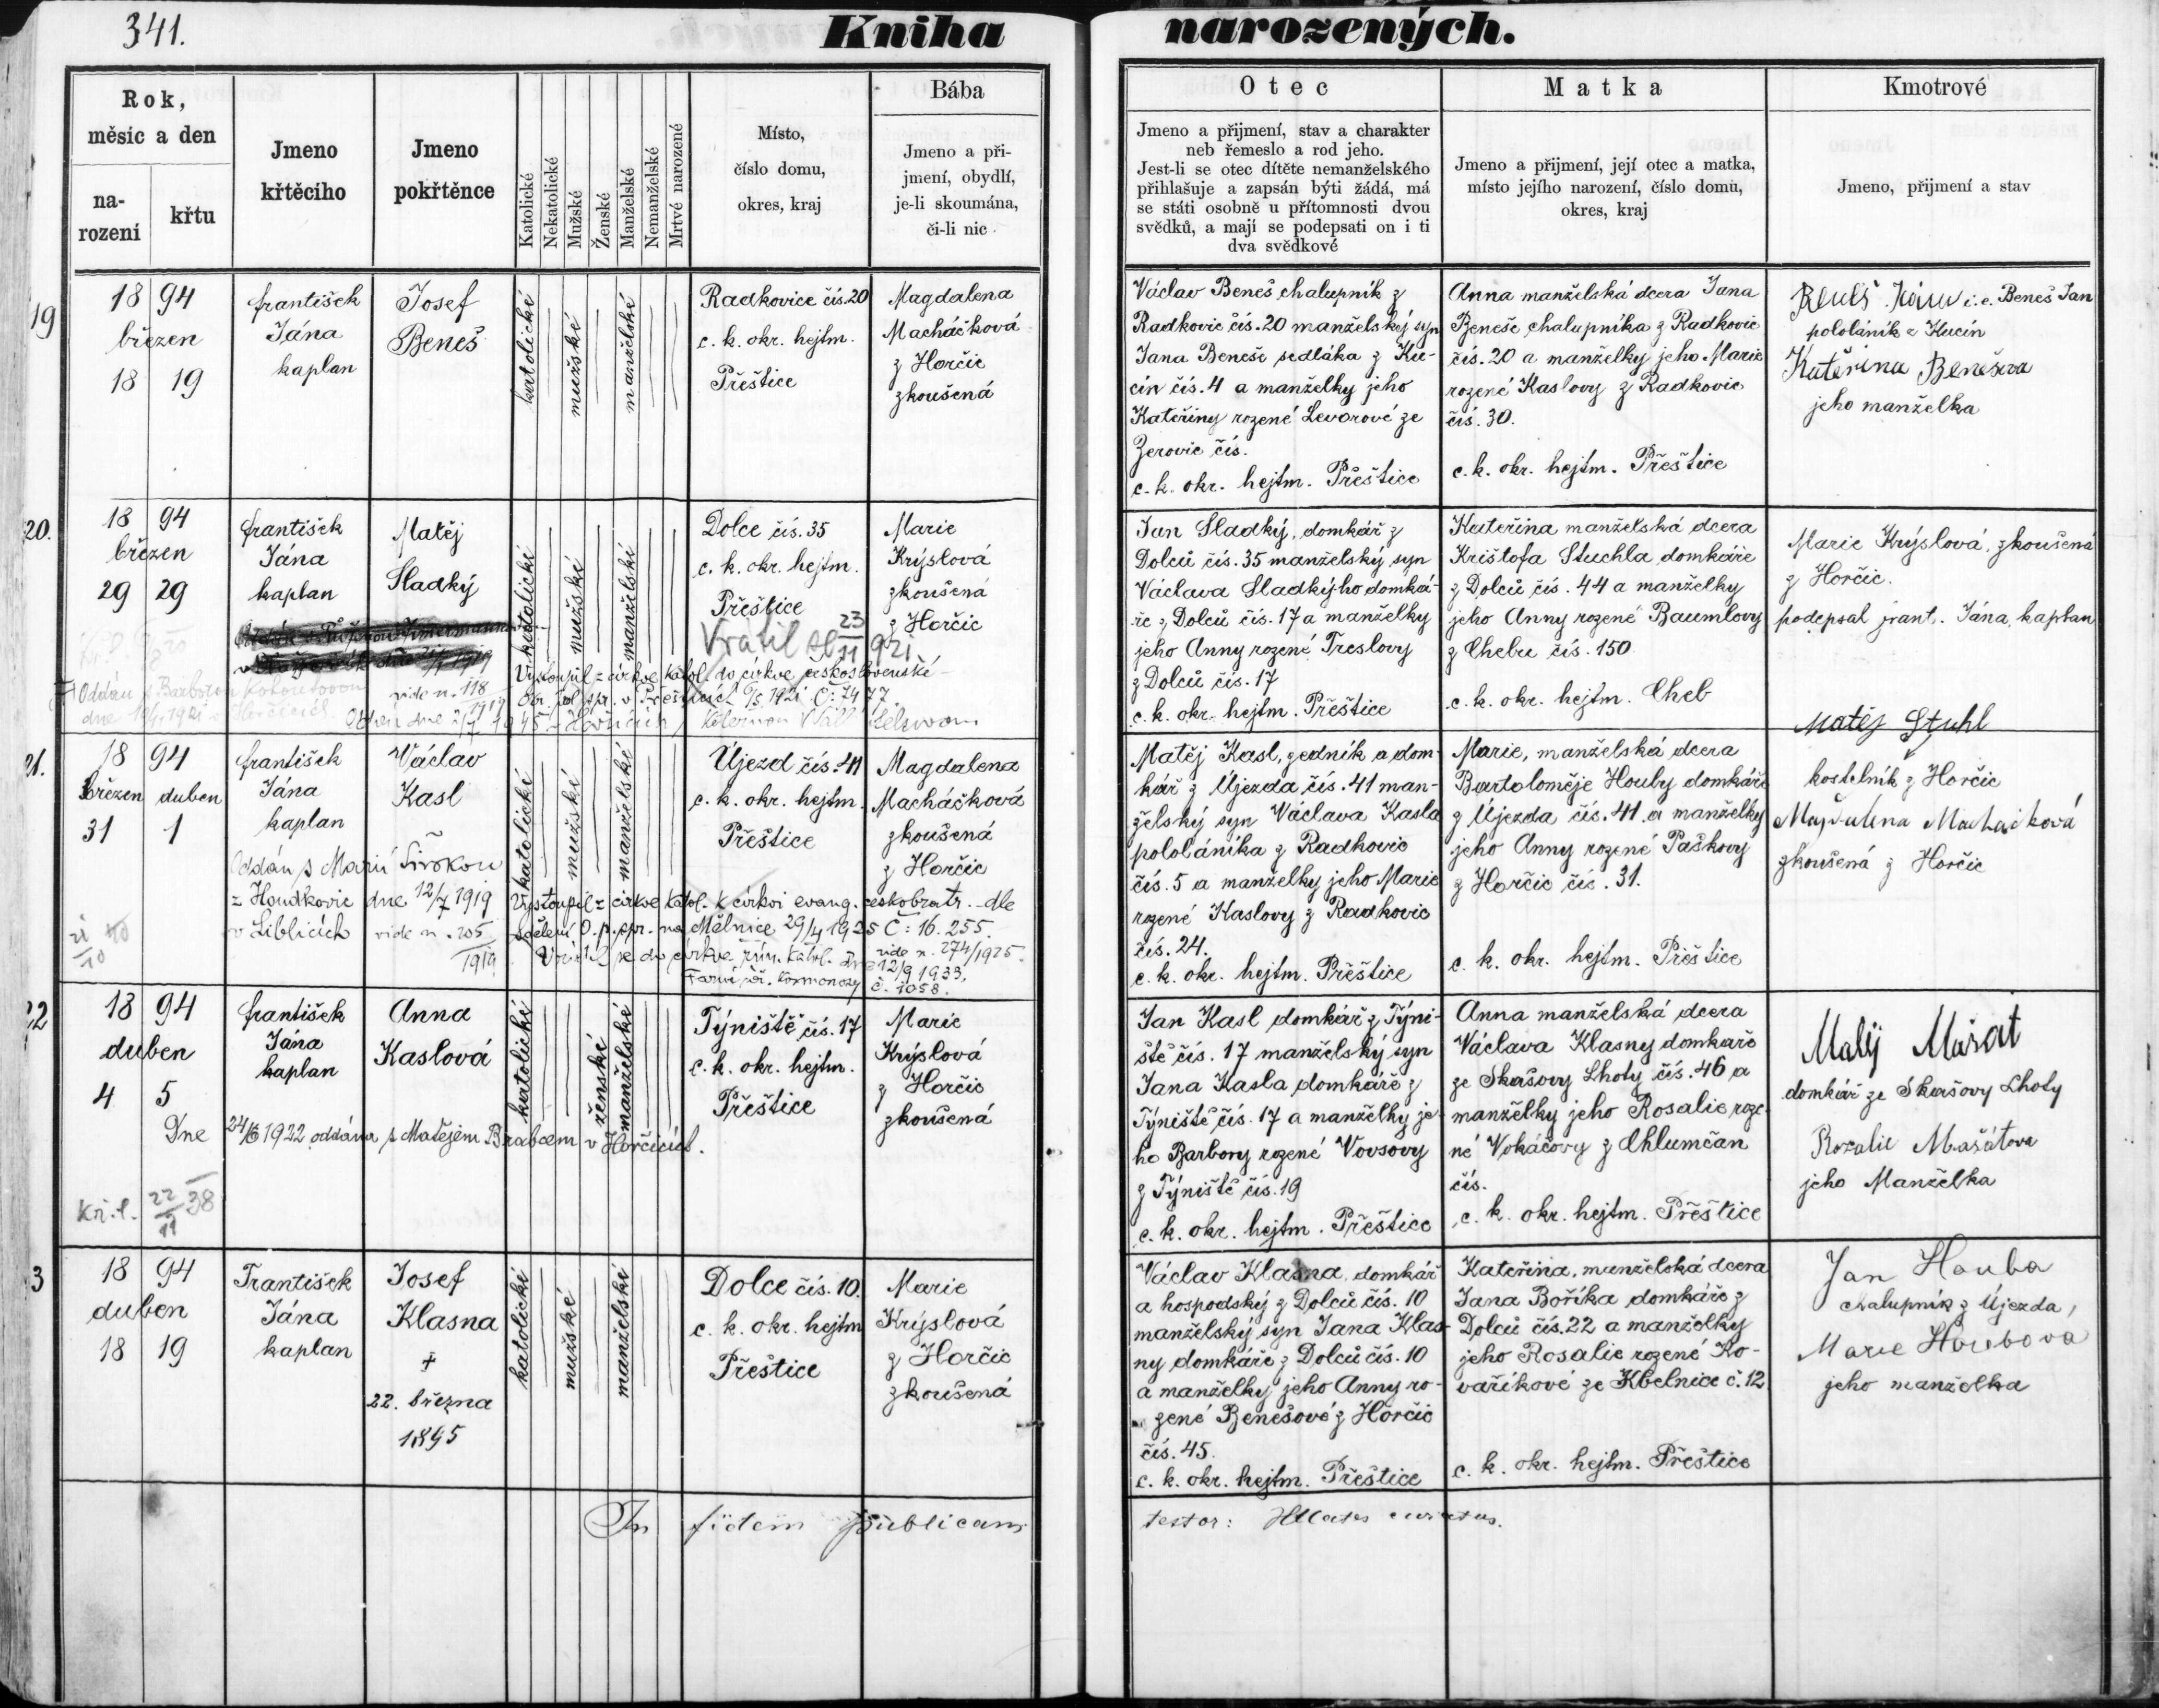 341.
Kniha narozených.
Rok,
měsíc a den
na-
rození
křtu
Jmeno
křtěcího
Jmeno
pokřtěnce
Katolické
Nekatolické
Mužské
Ženské
Manželské
Nemanželské
Mrtvé narozené
Místo,
číslo domu,
okres, kraj
Bába
Jmeno a při-
jmení, obydlí,
je-li skoumána,
či-li nic
Otec
Jmeno a přijmení, stav a charakter
neb řemeslo a rod jeho.
Jest-li se otec dítěte nemanželského
přihlašuje a zapsán býti žádá, má
se státi osobně u přítomnosti dvou
svědků, a mají se podepsati on i ti
dva svědkové
Matka
Jmeno a přijmení, její otec a matka,
místo jejího narození, číslo domu,
okres, kraj
Kmotrové
Jmeno, přijmení a stav
19
18 94
březen
18 19
František
Jána
kaplan
Josef
Beneš
katolické
mužské
manželské
Radkovice čís. 20
c. k. okr. hejtm.
Přeštice
Magdalena
Macháčková
z Horčic
zkoušená
Václav Beneš chalupník z
Radkovic čís. 20 manželský syn
Jana Beneše sedláka z Ku-
cín čís. 4 a manželky jeho
Kateřiny rozené Levorové ze
Zerovic čís.
c. k. okr. hejtm. Přeštice
Anna manželská dcera Jana
Beneše chalupníka z Radkovic
čís. 20 a manželky jeho Marie
rozené Kaslovy z Radkovic
čís. 30.
c. k. okr. hejtm. Přeštice
Beneš i. e. Beneš Jan
pololáník z Kucín
Kateřina Benešova
jeho manželka
20.
18 94
březen
29 29
František
Jána
kaplan
Matěj
Sladký
katolické
mužské
manželské
Dolce čís. 35
c. k. okr. hejtm.
Přeštice
Marie
Krýslová
zkoušená
z Horčic
Vrátil se 23/11 921
Vystoupil z církve katol. do církve československé
Okr. pol. spr. v Přešticích 1921 Č: 7477
Oddán s Barborou
vide n. 118
1919
Jan Sladký, domkář z
Dolců čís. 35 manželský syn
Václava Sladkýho domká-
ře z Dolců čís. 17 a manželky
jeho Anny rozené Treslovy
z Dolců čís. 17
c. k. okr. hejtm. Přeštice
Kateřina manželská dcera
Krištofa Stuchla domkáře
z Dolců čís. 44 a manželky
jeho Anny rozené Baumlovy
z Chebu čís. 150
c. k. okr. hejtm. Cheb
Marie Krýslová, zkoušená
z Horčic.
podepsal frant. Jána, kaplan
21.
18 94
březen duben
31 1
František
Jána
kaplan
Václav
Kasl
katolické
mužské
manželské
Újezd čís. 41
c. k. okr. hejtm.
Přeštice
Magdalena
Macháčková
zkoušená
z Horčic
Oddán s Marií Širokou
z Houdkovic dne 12/7 1919
v Liblicích vide n. 205
1919
Vystoupil z církve katol. k církvi evang. českobratr. dle
sdělení O. p. spr. na Mělníce 29/4 1925 Č: 16.255.
vide n. 274/1925.
Vrátil se do církve řím. katol. dne 12/9 1933,
č. 1058.
Matěj Kasl, zedník a dom-
kář z Újezda čís. 41 man-
želský syn Václava Kasla
pololáníka z Radkovic
čís. 5 a manželky jeho Marie
rozené Kaslovy z Radkovic
čís. 24.
c. k. okr. hejtm. Přeštice
Marie, manželská dcera
Bartoloměje Houby domkáře
z Újezda čís. 41 a manželky
jeho Anny rozené Paškovy
z Horčic čís. 31.
c. k. okr. hejtm. Přeštice
Matěj Stuhl
kostelník z Horčic
Magdalena Macháčková
zkoušená z Horčic
22
18 94
duben
4 5
František
Jána
kaplan
Anna
Kaslová
katolické
ženské
manželské
Týniště čís. 17
c. k. okr. hejtm.
Přeštice
Marie
Krýslová
z Horčic
zkoušená
Dne 24/6 1922 oddána s Matějem Brabcem v Horčicích.
Kř. l. 22/11 38
Jan Kasl domkář z Týni-
ště čís. 17 manželský syn
Jana Kasla domkáře z
Týniště čís. 17 a manželky je-
ho Barbory rozené Vovsovy
z Týniště čís. 19
c. k. okr. hejtm. Přeštice
Anna manželská dcera
Václava Klasny domkáře
ze Skašovy Lhoty čís. 46 a
manželky jeho Rosalie roze-
né Vokáčovy z Chlumčan
čís.
c. k. okr. hejtm. Přeštice
Matěj Mašat
domkář ze Skašovy Lhoty
Rozalie Mašátova
jeho Manželka
3
18 94
duben
18 19
František
Jána
kaplan
Josef
Klasna
+
22. března
1895
katolické
mužské
manželské
Dolce čís. 10.
c. k. okr. hejtm
Přeštice
Marie
Krýslová
z Horčic
zkoušená
Václav Klasna, domkář
a hospodský z Dolců čís. 10
manželský syn Jana Klas-
ny domkáře z Dolců čís. 10
a manželky jeho Anny ro-
zené Benešové z Horčic
čís. 45.
c. k. okr. hejtm. Přeštice
Kateřina, manželská dcera
Jana Boříka domkáře z
Dolců čís. 22 a manželky
jeho Rosalie rozené Ko-
vaříkové ze Kbelnice č. 12
c. k. okr. hejtm. Přeštice
Jan Houba
chalupník z Újezda,
Marie Houbova
jeho manželka
In fidem publicam testor: